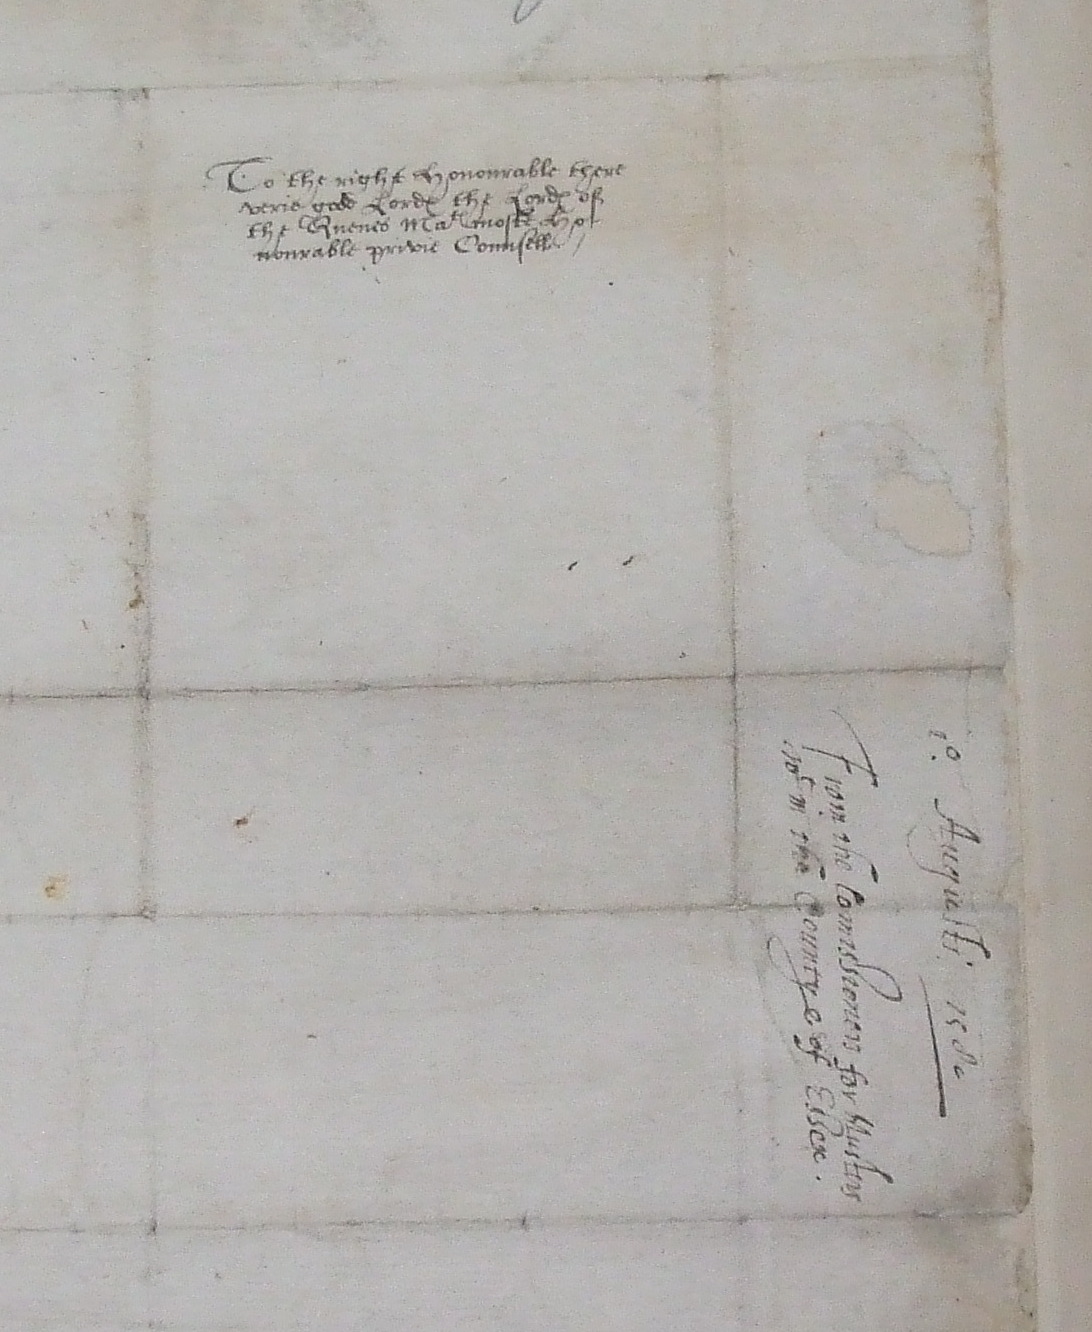 To the right Honourable there
verie good Lordes the Lordes of
the Quenes Matꝭ moste Ho/
nourable privie Counsell /
1º. Augusti. 1580
From the Comissioners for Musters
in the County of Essex.